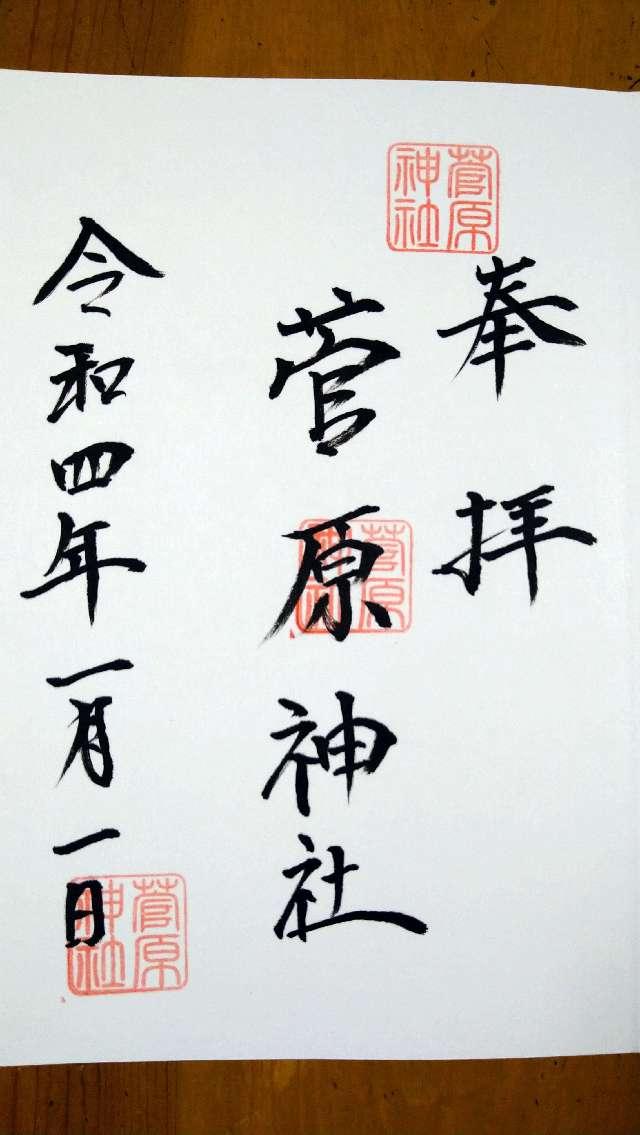 菅原神社
奉拝
菅原神社
菅原神社
令和四年一月一日
菅原神社